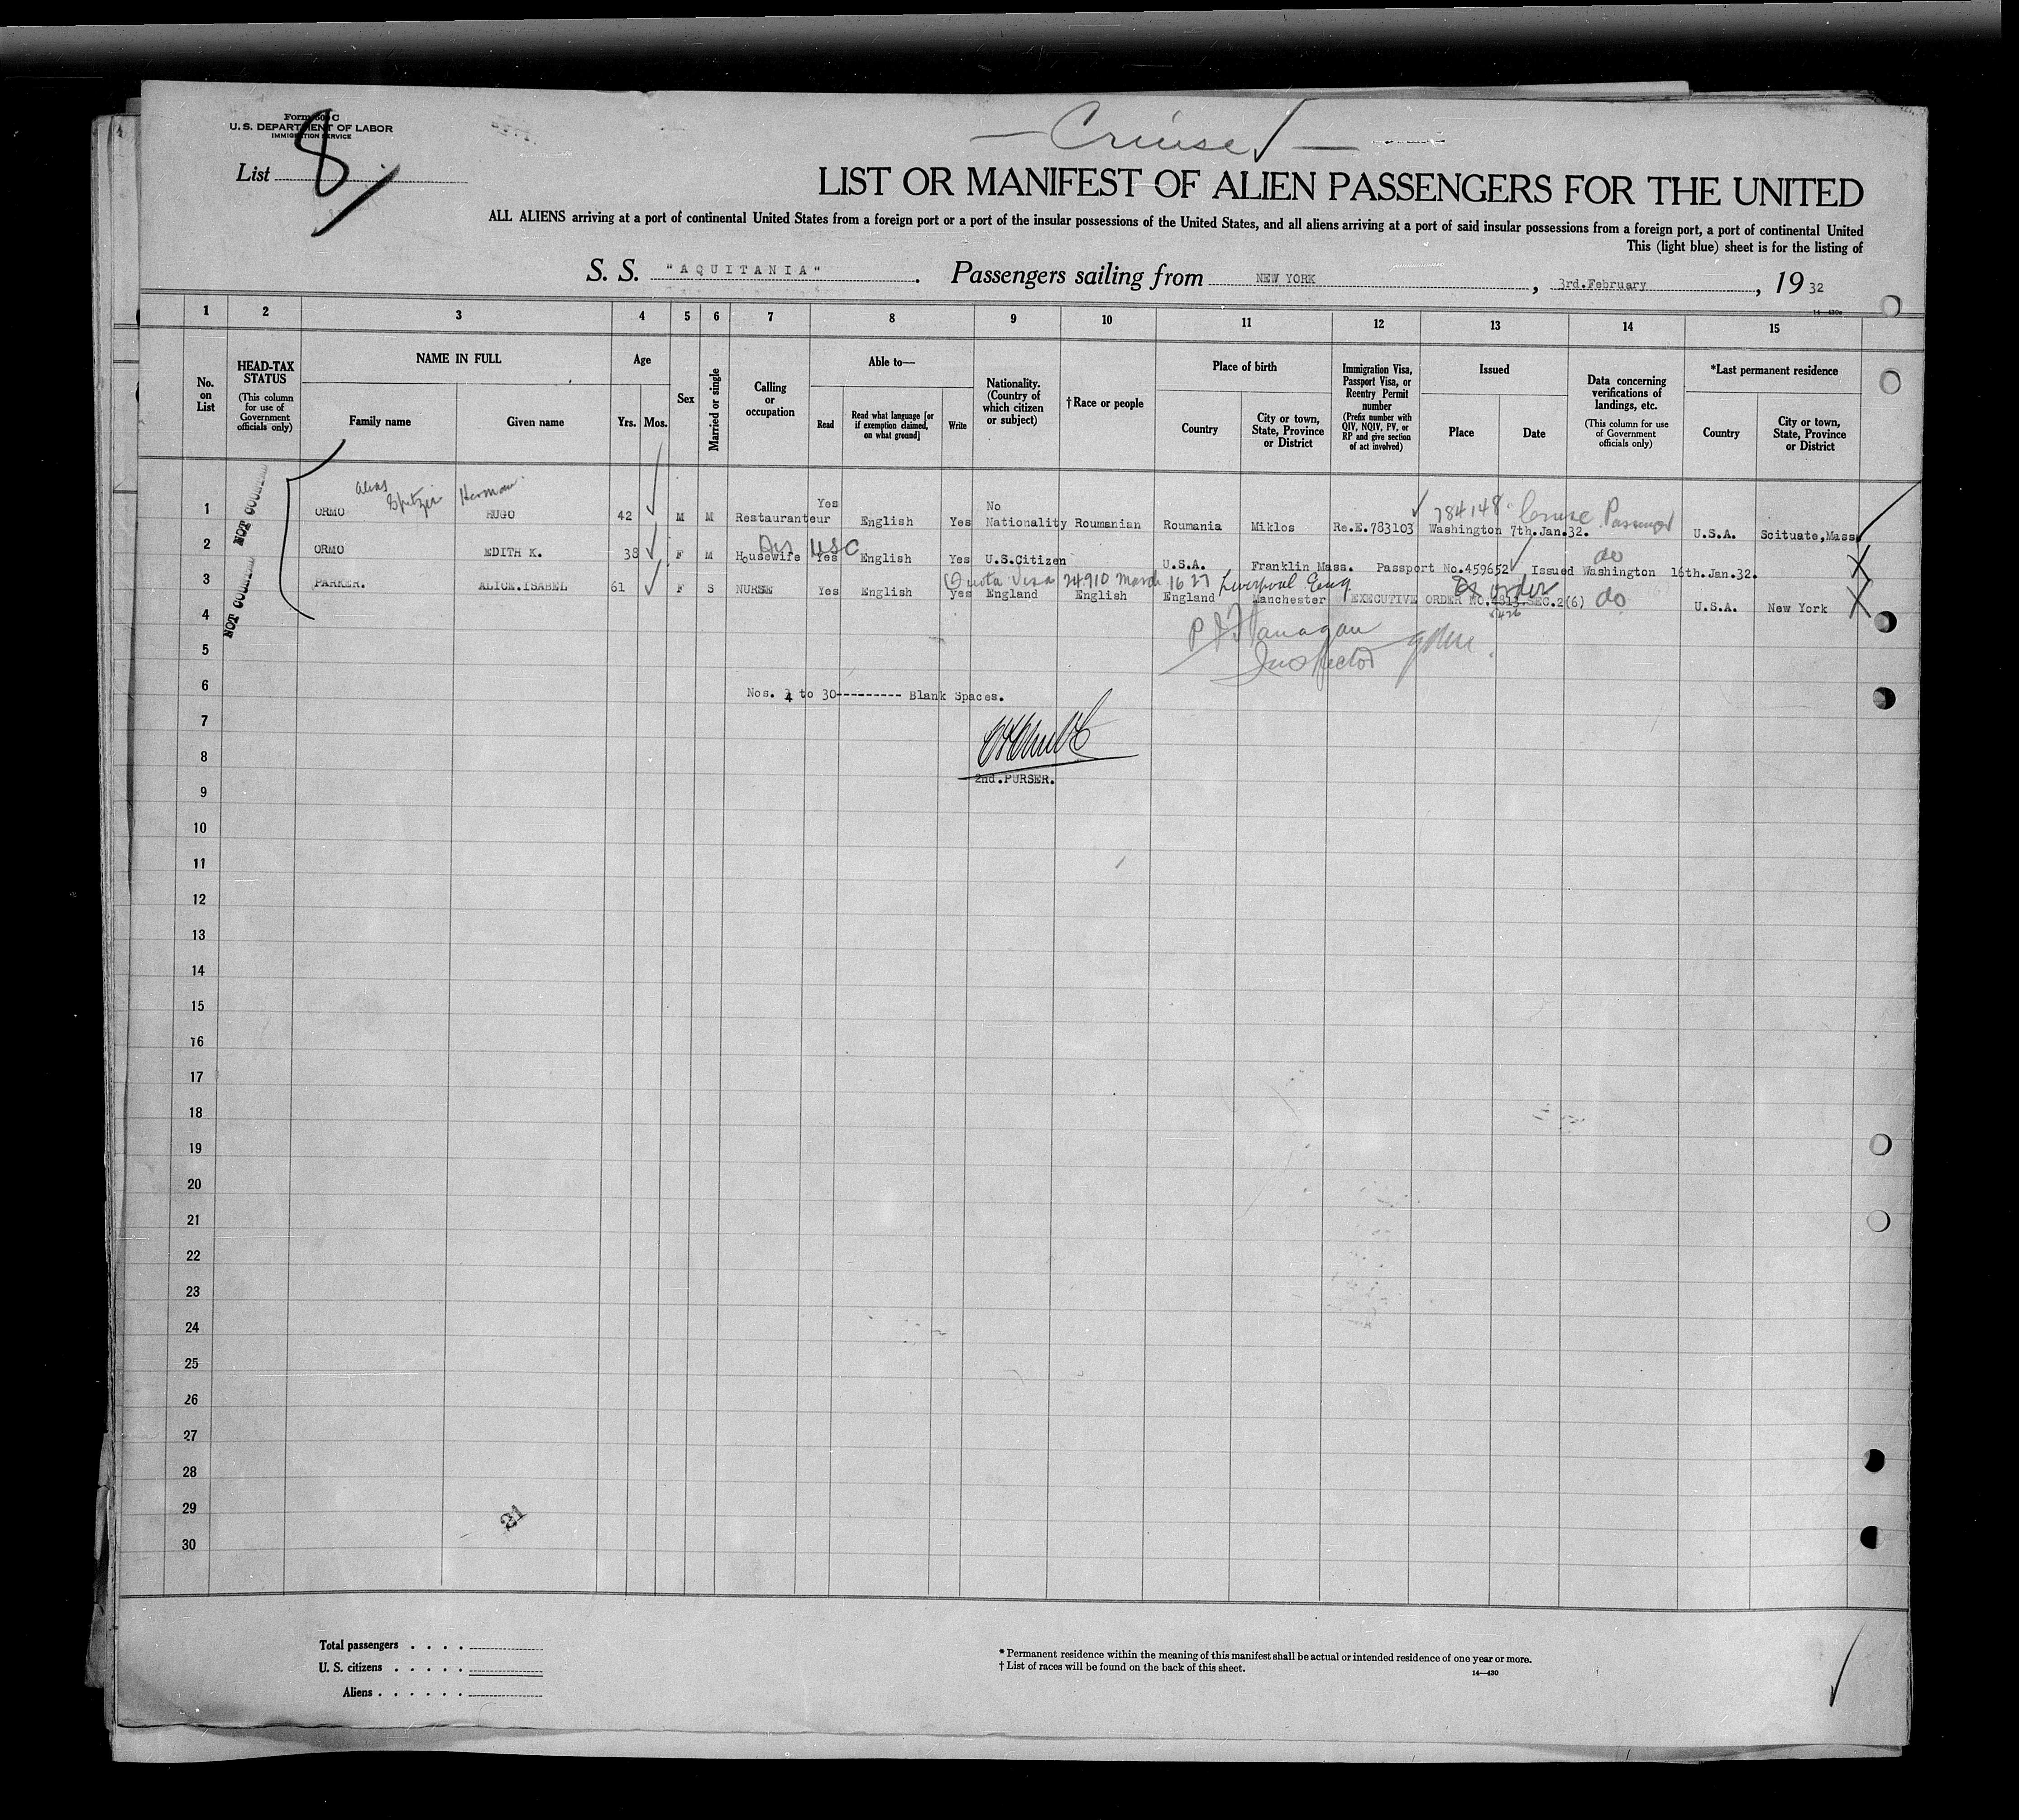 Form 500 C
U. S. DEPARTMENT OF LABOR
IMMIGRATION SERVICE
List 8
— Cruise —
LIST OR MANIFEST OF ALIEN PASSENGERS FOR THE UNITED
ALL ALIENS arriving at a port of continental United States from a foreign port or a port of the insular possessions of the United States, and all aliens arriving at a port of said insular possessions from a foreign port, a port of continental United
This (light blue) sheet is for the listing of
S. S. "AQUITANIA". Passengers sailing from NEW YORK, 3rd.February, 1932
14—430a
1 2 3 4 5 6 7 8 9 10 11 12 13 14 15
No. on List
HEAD-TAX STATUS
(This column for use of Government officials only)
NAME IN FULL
Family name
Given name
Age
Yrs. Mos.
Sex
Married or single
Calling or occupation
Able to—
Read
Read what language [or if exemption claimed, on what ground]
Write
Nationality. (Country of which citizen or subject)
†Race or people
Place of birth
Country
City or town, State, Province or District
Immigration Visa, Passport Visa, or Reentry Permit number
(Prefix number with QIV, NQIV, PV, or RP and give section of act involved)
Issued
Place
Date
Data concerning verifications of landings, etc.
(This column for use of Government officials only)
*Last permanent residence
Country
City or town, State, Province or District
NOT COUNTED
alias Spitzer Herman
784148 Cruise Passenger
1 ORMO HUGO 42 M M Restauranteur Yes English Yes No Nationality Roumanian Roumania Miklos Re.E.783103 Washington 7th.Jan.32. U.S.A. Scituate,Mass
USC
2 ORMO EDITH K. 38 F M Housewife Yes English Yes U.S.Citizen U.S.A. Franklin Mass. Passport No.459652 Issued Washington 16th.Jan.32. do
NOT COUNTED
Quota Visa 24910 March 16 27 Liverpool Eng Ex order
3 PARKER. ALICE.ISABEL 61 F S NURSE Yes English yes England English England Manchester EXECUTIVE ORDER NO.4813.SEC.2(6) do U.S.A. New York
5426
4
P J Flanagan
5
Inspector
6
Nos. 4 to 30--------- Blank Spaces.
7
8
2nd.PURSER.
9
10
11
12
13
14
15
16
17
18
19
20
21
22
23
24
25
26
27
28
29
21
30
Total passengers . . . .
U. S. citizens . . . . .
Aliens . . . . . .
* Permanent residence within the meaning of this manifest shall be actual or intended residence of one year or more.
† List of races will be found on the back of this sheet.
14—430